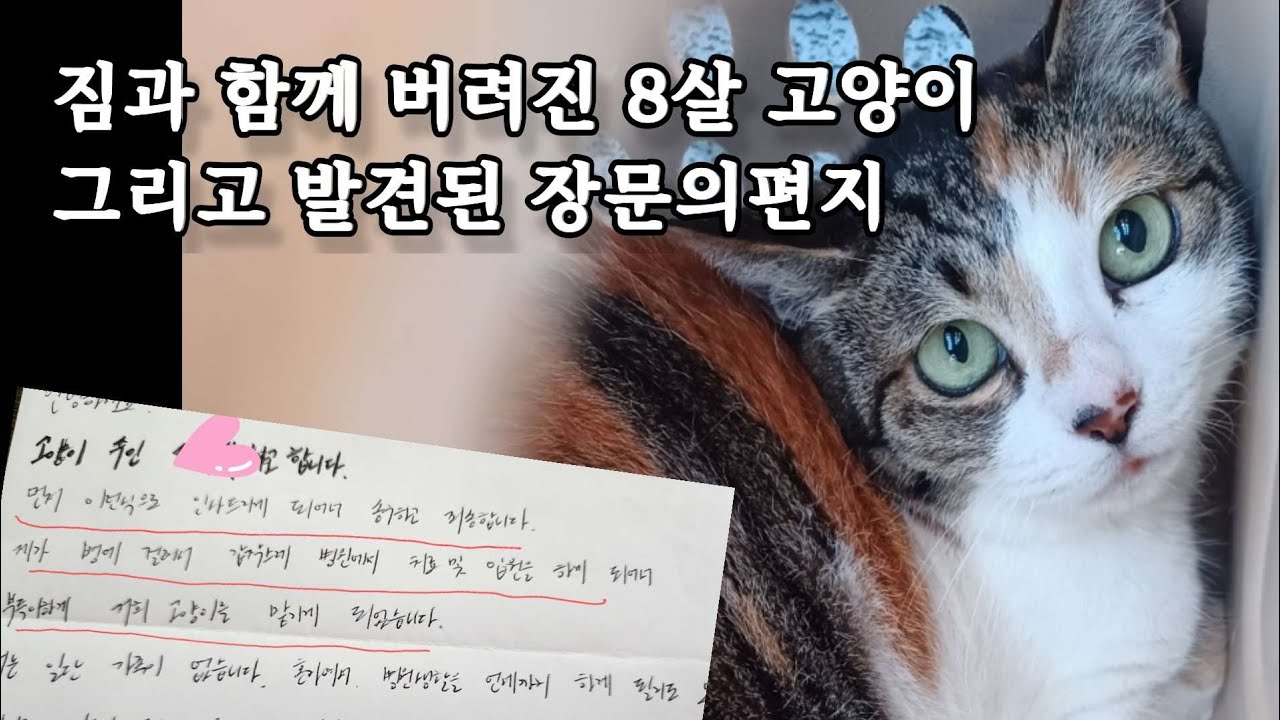 짐과 함께 버려진 8살 고양이
그리고 발견된 장문의편지
안녕하세요.
고양이 주인 라고 합니다.
먼저 이런식으로 인사드리게 되어서 송구하고 죄송합니다.
제가 병에 걸려서 갑작스레 병원에서 치료 및 입원을 하게 되어서
부득이하게 저희 고양이를 맡기게 되었습니다.
일단 가족이 없습니다. 혼자여서. 병원생활을 언제까지 하게 될지도